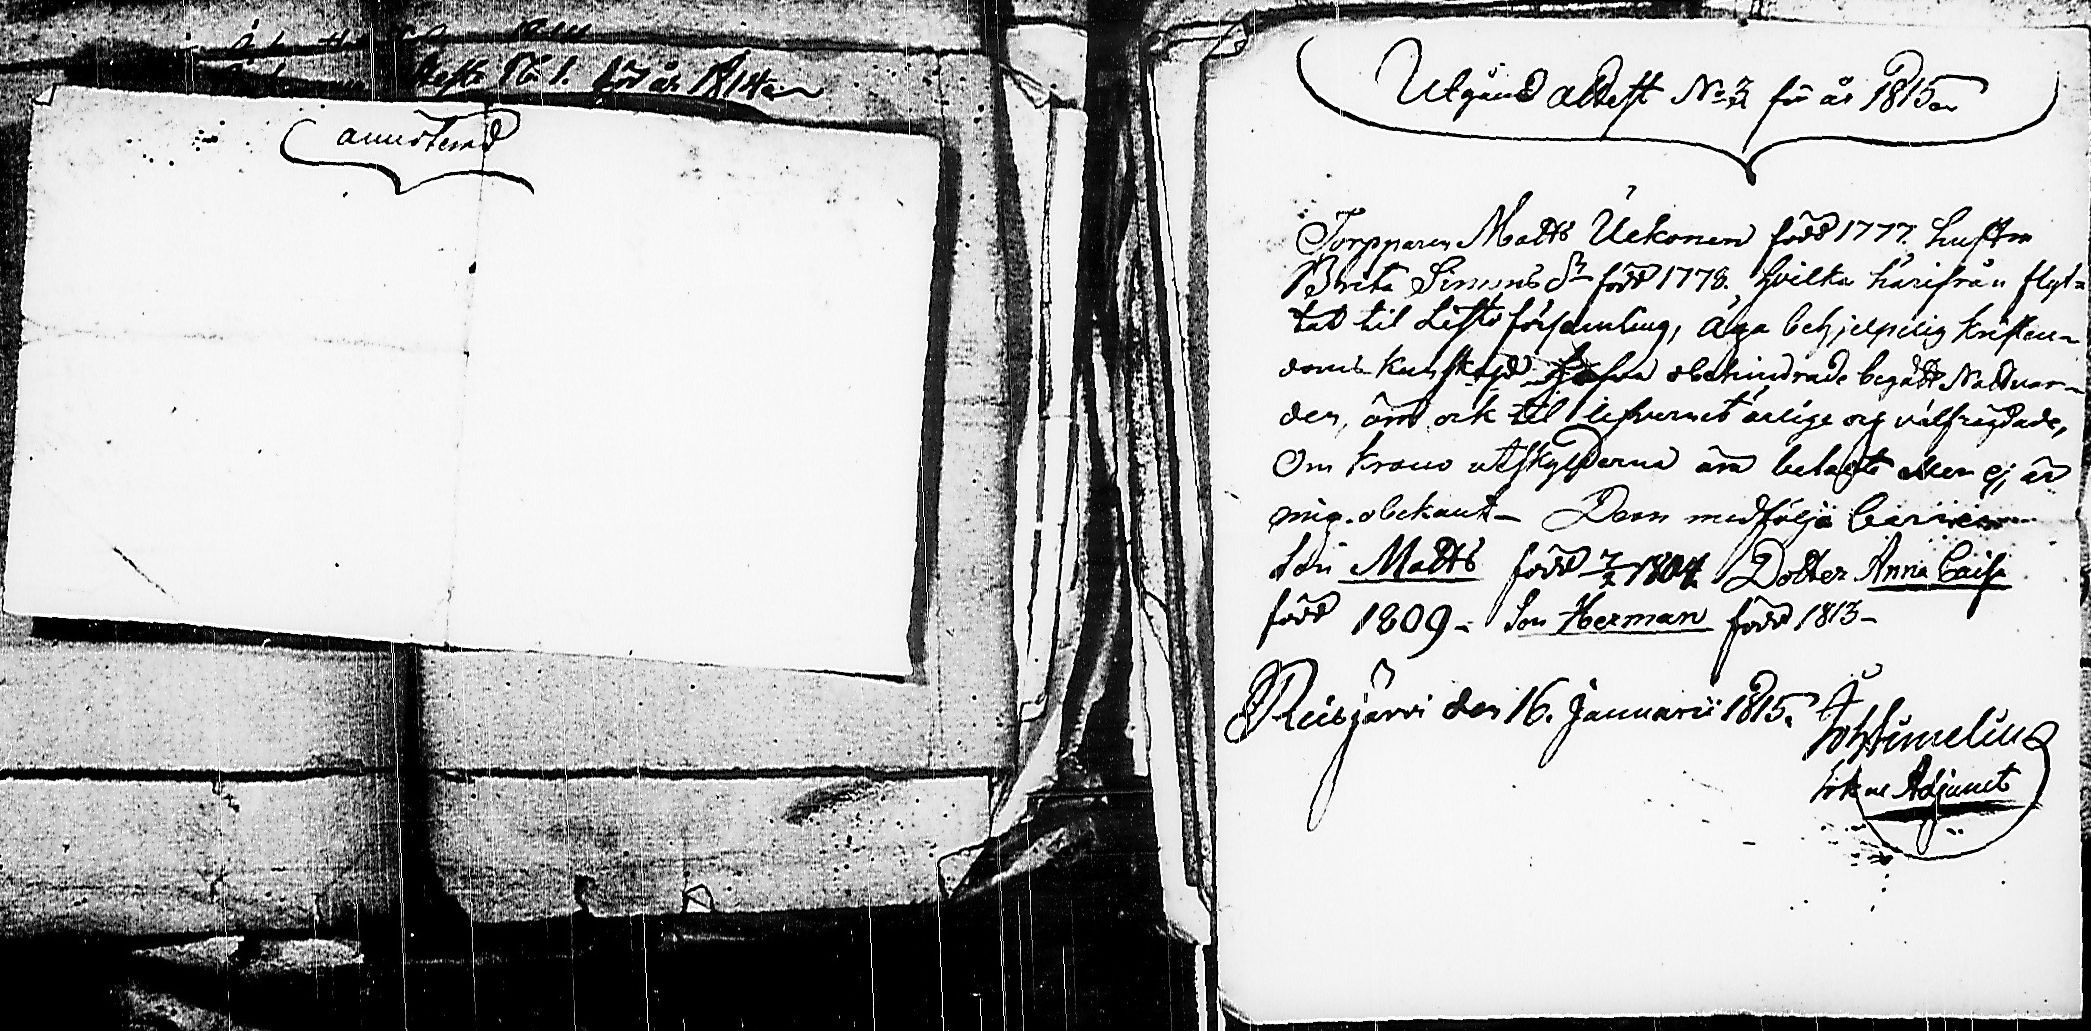 Attest No 1. för år 1814
annoterad
Utgånd attest No 3 för år 1815
Torpparen Matts Ückonen född 1777. hustru
Brita Simons dr född 1778. hvilka härifrån flyt-
tat til Lesti församling, äga behjelpelig kristen-
doms kunskap hafva obehindrade begått Nattvar-
den, äro ock til lefvernet ärlige og välfrägdade,
Om krono utskylderna äro betalte eller ej, är
mig obekant - Dem medfölja barnen
Son Matts född 1804 Dotter Anna Caisa
född 1809 - Son Herman född 1813 -
Reisjärvi den 16. Januarii 1815.
Adjunct